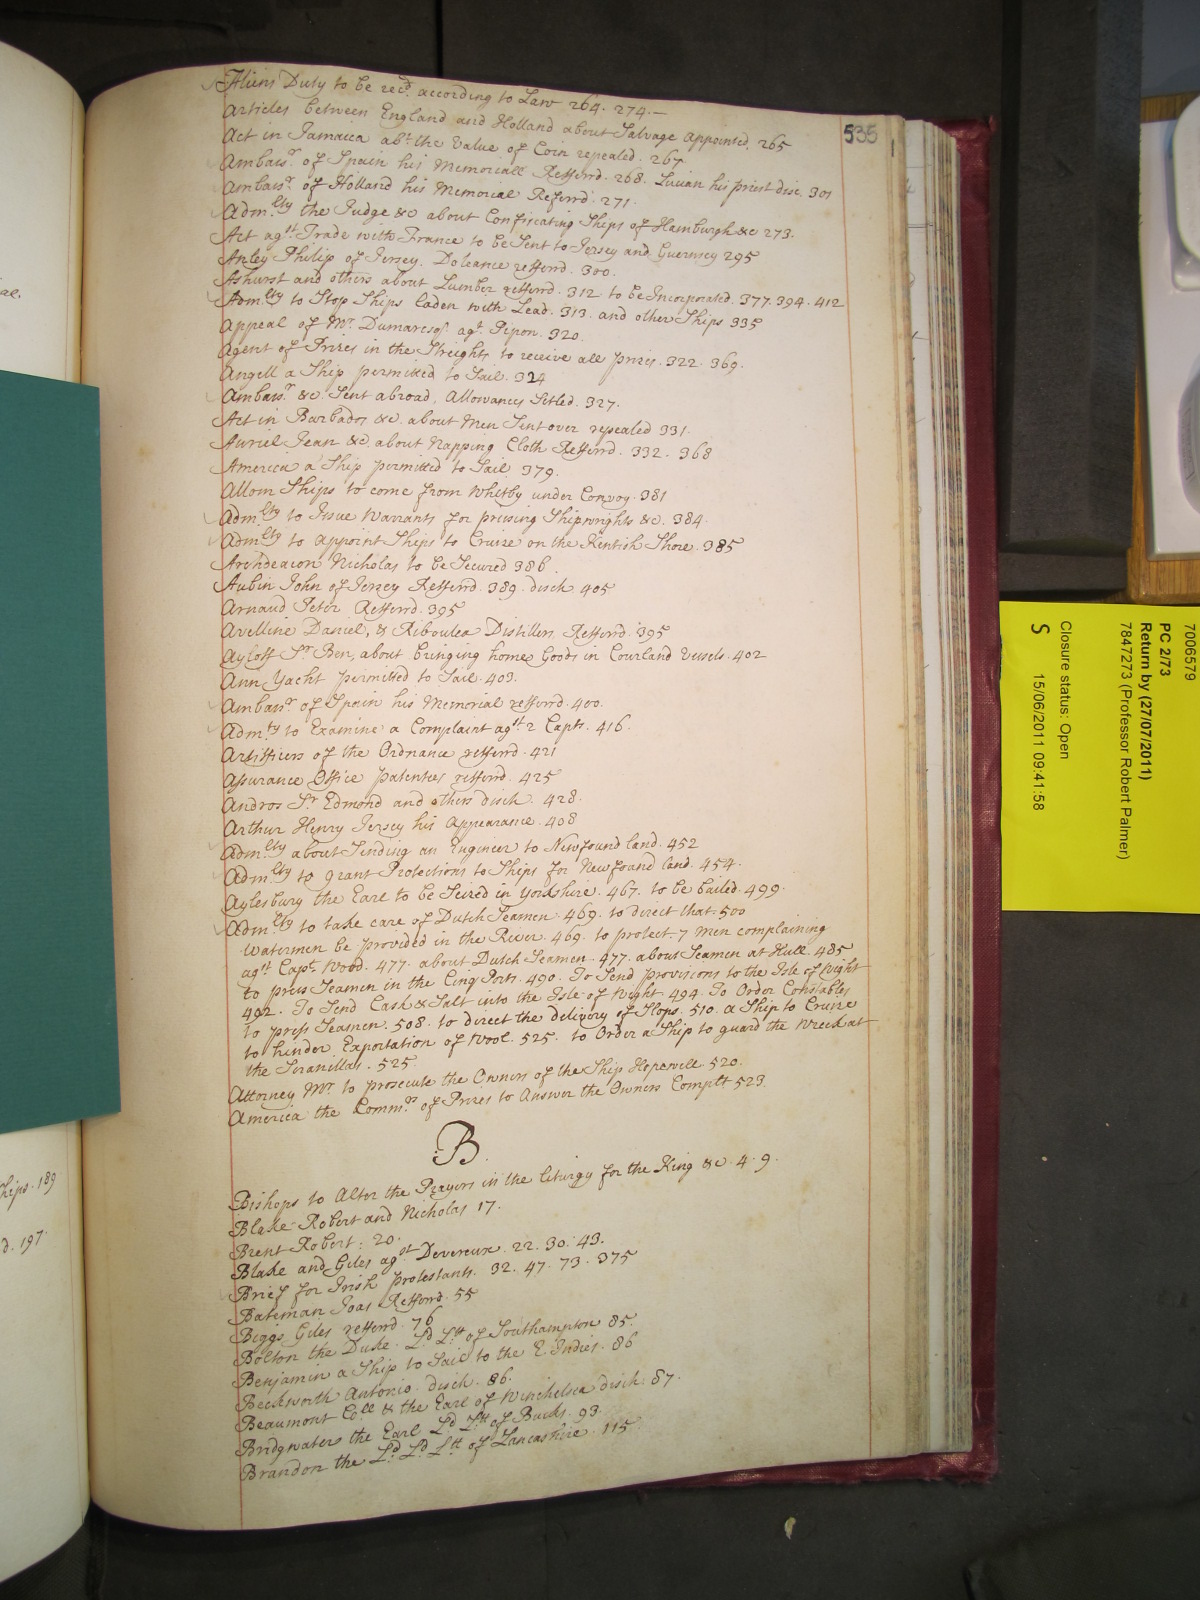 Aliens Duty to be recd. according to Law 264. 274.—
Articles between England and Holland about Salvage appointed. 265
535
Act in Jamaica abt. the Value of Coin repealed. 267
Ambassr. of Spain his Memoriall Refferrd. 268. Lucian his priest disc. 301
Ambassr. of Holland his Memorial Referrd. 271.
Admlty the Judge &c about Confiscating Ships of Hamburgh &c 273.
Act agst. Trade with France to be Sent to Jersey and Guernsey 295
Anley Philip of Jersey. Doleance refferrd. 300.
Ashurst and others about Lumber refferrd. 312 to be Incorporated. 377. 394. 412
Admlty to Stop Ships laden with Lead. 313. and other Ships 335
Appeal of Mr. Dumaresq agt. Pipon. 320.
Agent of Prizes in the Streights to receive all prizes. 322. 369.
Angell a Ship permitted to Sail. 324
Ambassr. &c. Sent abroad, Allowances Setled. 327.
Act in Barbados &c. about Men Sent over repealed 331.
Auriel Jean &c. about Napping Cloth Refferrd. 332. 368
America a Ship permitted to Sail 379.
Allom Ships to come from Whitby under Convoy. 381
Admlty to Issue Warrants for pressing Shipwrights &c. 384.
Admlty to appoint Ships to Cruize on the Kentish Shore. 385
Archdeacon Nicholas to be Secured 386.
Aubin John of Jersey Refferrd. 389. disch. 405
Arnaud Peter Refferrd. 395
Avelline Daniel, & Riboulea Distillers Refferrd. 395
Ayloff Sr. Ben, about bringing home Goods in Courland Vessels. 402
Ann Yacht permitted to Sail. 403.
Ambassr. of Spain his Memorial refferrd. 400.
Admty to Examine a Complaint agst. 2 Capts. 416.
Artificers of the Ordnance refferrd. 421
Assurance Office patentees refferrd. 425
Andros Sr. Edmond and others disch. 428.
Arthur Henry Jersey his Appearance. 408
Admlty about Sending an Engineer to Newfound land. 452
Admlty to grant Protections to Ships for Newfound land. 454.
Aylesbury the Earl to be Seized in Yorkshire. 467. to be bailed. 499.
Admlty to take care of Dutch Seamen. 469. to direct that. 500
Watermen be provided in the River. 469. to protect. 7 men complaining
agst. Capt. Wood. 477. about Dutch Seamen. 477. about Seamen at Hull. 485
to press Seamen in the Cinq Ports. 490. To Send provisions to the Isle of Wight
492. To Send Cask & Salt into the Isle of Wight 494. To Order Constables
to press Seamen. 508. to direct the delivery of Slops. 510. a Ship to Cruize
to hinder Exportation of Wool. 525. to Order a Ship to guard the Wreck at
the Seranillas. 525.
Attorney Mr. to prosecute the Owners of the Ship Hopewell. 520.
America the Commrs. of Prizes to Answer the Owners Complt 523.
B
Bishops to Alter the Prayers in the Liturgy for the King &c. 4. 9.
Blake Robert and Nicholas 17.
Brent Robert: 20.
Blake and Giles agst Devereux. 22. 30. 43.
Brief for Irish protestants. 32. 47. 73. 375
Bateman Joas Refferrd. 55
Biggs Giles refferrd. 76
Bolton the Duke. Ld. Lt. of Southampton 85.
Benjamin a Ship to Sail to the E. Indies. 86
Beckworth Antonio disch. 86.
Beaumont Coll. & the Earl of Winchelsea disch. 87.
Bridgwater the Earl Ld. Lt. of Bucks. 93.
Brandon the Ld. Ld. Lt. of Lancashire 115
hips. 189
d. 197.
7006579
PC 2/73
Return by (27/07/2011)
7847273 (Professor Robert Palmer)
Closure status: Open
S 15/06/2011 09:41:58